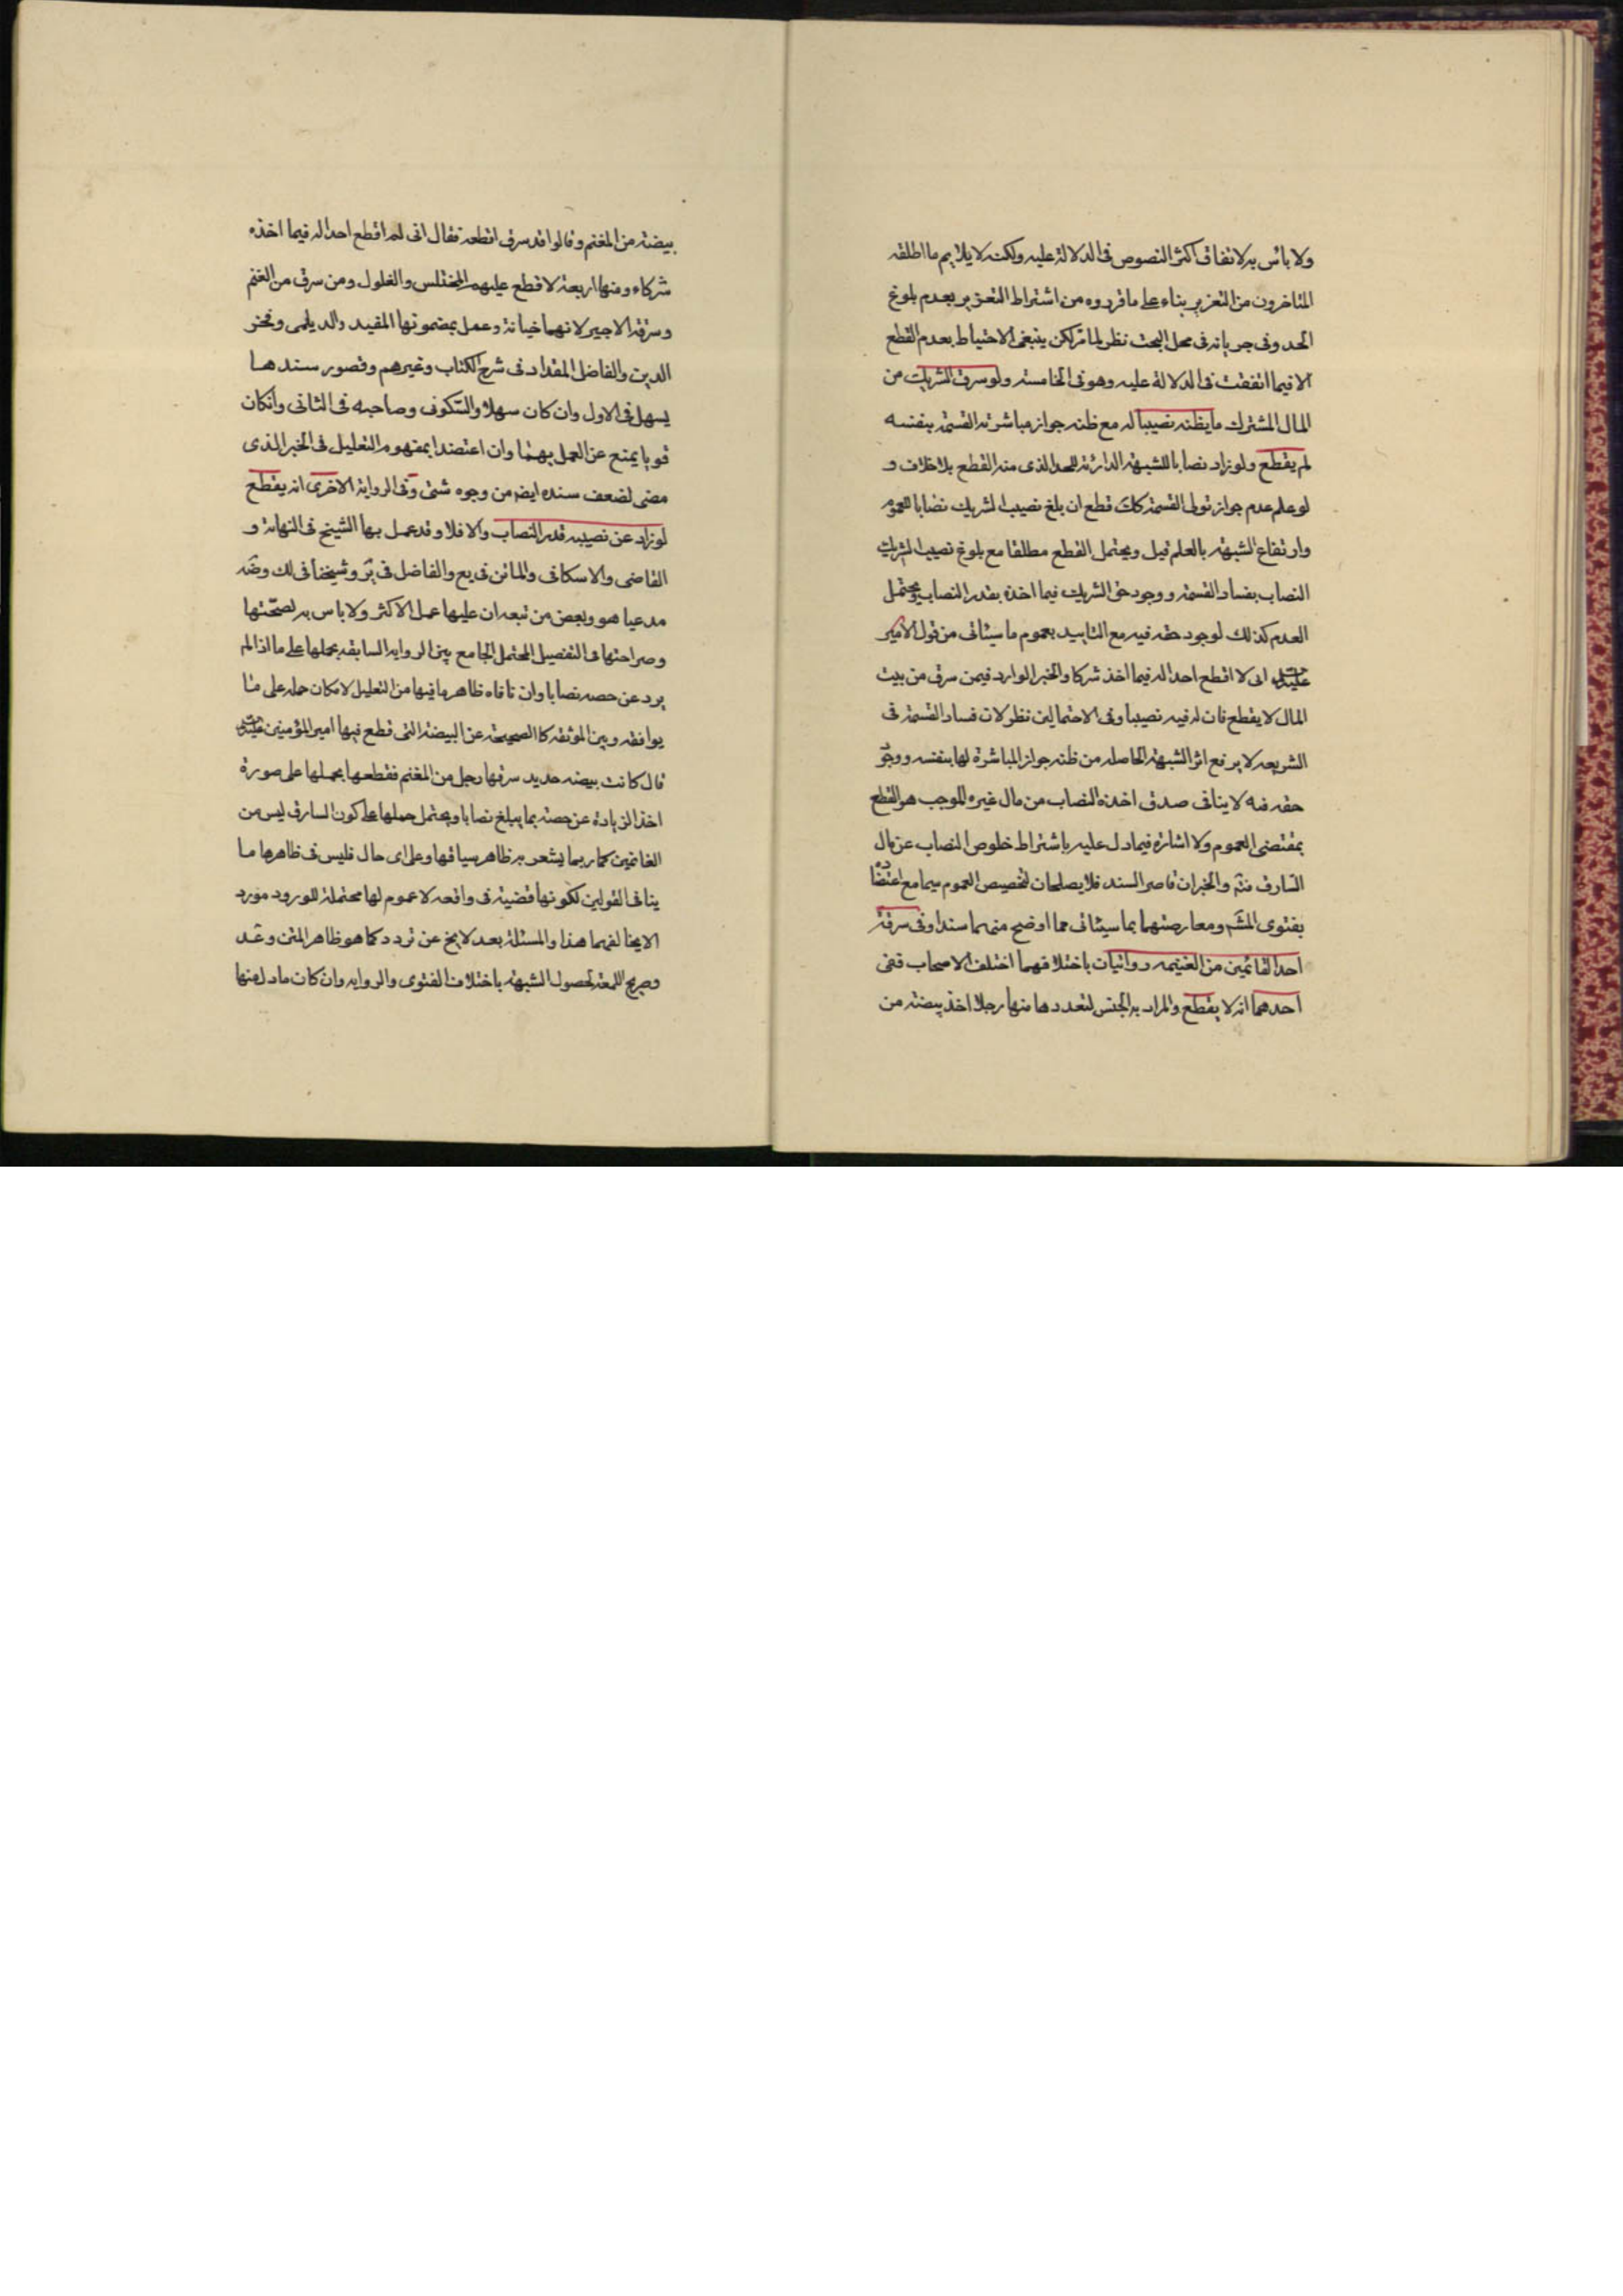 ولا باس به لاتفاق اكثر النصوص فى الدلالة عليه ولكنه لا يلايم ما اطلقه
المتاخرون من التعزير بناء على ما قرروه من اشتراط التعزير بعدم بلوغ
الحد وفى جريانه فى محل البحث نظر لما مر لكن ينبغى الاحتياط بعدم القطع
الا فيما اتفقت فى الدلالة عليه وهو فى الخامسة ولو سرق الشريك من
المال المشترك ما يظنه نصيبا له مع ظنه جواز مباشرته القسمة بنفسه
لم يقطع ولو زاد نصابا للشبهة الدارئة للحد الذى منه القطع بلا خلاف و
لو علم عدم جواز تولى القسمة كك قطع ان بلغ نصيب الشريك نصابا للعموم
وارتفاع الشبهة بالعلم قيل ويحتمل القطع مطلقا مع بلوغ نصيب الشريك
النصاب بفساد القسمة ووجود حق الشريك فيما اخذه بقدر النصاب ويحتمل
العدم كذلك لوجود حقه فيه مع التاييد بعموم ما سيئاتى من قول الامير
انى لا اقطع احدا له فيما اخذ شركا والخبر الوارد فيمن سرق من بيت
المال لا يقطع فان له فيه نصيبا وفى الاحتمالين نظر لان فساد القسمة فى
الشريعه لا يرفع اثر الشبهة الحاصله من ظنه جواز المباشرة لها بنفسه ووجو
حقه فيه لا ينافى صدق اخذه النصاب من مال غيره الموجب هو للقطع
بمقتضى العموم ولا اشارة فيما دل عليه باشتراط خلوص النصاب عن مال
السارق فتم والخبران قاصر السند فلا يصلحان لتخصيص العموم سيما مع اعتضا
بفتوى المش ومعارضتهما بما سيئاتى مما اوضح منهما سندا وفى سرقة
احد الغانمين من الغنيمه روايتان باختلافهما اختلف الاصحاب ففى
احدهما انه لا يقطع والمراد به الجنس لتعددها منها رجلا اخذ بيضته من
بيضته من المغنم وقالوا قد سرق اقطعه فقال انى لم اقطع احدا له فيما اخذه
شركاء ومنها اربعة لا قطع عليهم المختلس والغلول ومن سرق من الغنم
وسرقة الاجير لانهما خيانة وعمل بمضمونها المفيد والديلمى وفخر
الدين والفاضل المقداد فى شرح الكتاب وغيرهم وقصور سندها
يسهل فى الاول وان كان سهلا والسكونى وصاحبه فى الثانى وان كان
قويا يمنع عن العمل بهما وان اعتضدا بمفهوم التعليل فى الخبر الذى
مضى لضعف سنده ايضه من وجوه شتى وفى الرواية الاخرى انه يقطع
لو زاد عن نصيبه قدر النصاب والا فلا وقد عمل بها الشيخ فى النهاية و
القاضى والاسكافى والماتن فى يع والفاضل فى ير وشيخنا فى لك وضه
مدعيا هو وبعض من تبعه ان عليها عمل الاكثر ولا باس به لصحتها
وصراحتها فى التفصيل المحتمل الجامع بين الروايه السابقه بحملها على ما اذا لم
يرد عن حصه نصابا وان نافاه ظاهر ما فيها من التعليل لامكان حمله على ما
يوافقه وبين الموثقه كالصحيحة عن البيضة التى قطع فيها امير المؤمنين
قال كانت بيضه حديد سرقها رجل من المغنم فقطعها بحملها على صورة
اخذ الزيادة عن حصته بما يبلغ نصابا ويحتمل حملها على كون السارق ليس من
الغانمين كما ربما يشعر به ظاهر سياقها وعلى اى حال فليس فى ظاهرها ما
ينافى القولين لكونها قضية فى واقعه لا عموم لها محتملة للورود مورد
الا يخالفهما هذا والمسئلة بعد لا يخ عن تردد كما هو ظاهر المتن وعد
وصريح اللمعة لحصول الشبهة باختلاف الفتوى والروايه وان كان ما دل منها